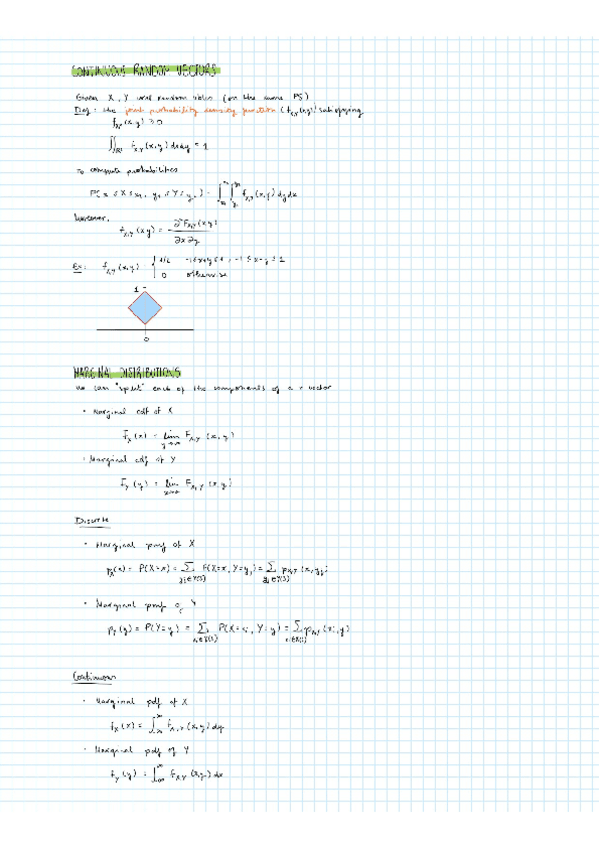 CONTINUOUS RANDOM VECTORS
Given X, Y cont random vbles (on the same PS)
Def: the joint probability density function (f_{X,Y}(x,y)) satisfying
f_{X,Y}(x,y) ≥ 0
∬ f_{X,Y}(x,y) dxdy = 1
To compute probabilities
f_{X,Y}(x,y) = ∂²F_{X,Y}(x,y) / ∂x∂y
Ex: f_{X,Y}(x,y) { 1/2 -1≤x+y≤1, -1≤x-y≤1
0 otherwise
1
0
MARGINAL DISTRIBUTIONS
we can "split" each of the components of a r vector
• Marginal cdf of X
F_X(x) = lim_{y→∞} F_{X,Y}(x,y)
• Marginal cdf of Y
F_Y(y) = lim_{x→∞} F_{X,Y}(x,y)
Discrete
• Marginal pmf of X
p_X(x) = P(X=x) = Σ_{y_j∈Y(S)} P(X=x, Y=y_j) = Σ_{y_j∈Y(S)} p_{X,Y}(x,y_j)
• Marginal pmf of Y
p_Y(y) = P(Y=y) = Σ_{x_i∈X(S)} P(X=x_i, Y=y) = Σ_{x_i∈X(S)} p_{X,Y}(x_i,y)
Continuous
• Marginal pdf of X
f_X(x) = ∫_{-∞}^{∞} f_{X,Y}(x,y) dy
• Marginal pdf of Y
f_Y(y) = ∫_{-∞}^{∞} f_{X,Y}(x,y) dx